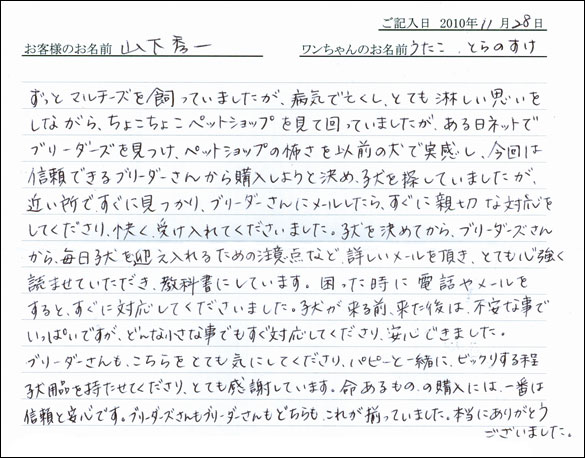 ご記入日 2010年11月28日
お客様のお名前 山下秀一 ワンちゃんのお名前 うたこ、とらのすけ
ずっとマルチーズを飼っていましたが、病気で亡くし、とても淋しい思いを
しながら、ちょこちょこペットショップを見て回っていましたが、ある日ネットで
ブリーダーズを見つけ、ペットショップの怖さを以前の犬で実感し、今回は
信頼できるブリーダーさんから購入しようと決め、子犬を探していましたが、
近い所ですぐに見つかり、ブリーダーさんにメールしたら、すぐに親切な対応を
してくださり、快く、受け入れてくださいました。子犬を決めてから、ブリーダーズさん
から、毎日子犬を迎え入れるための注意点など、詳しいメールを頂き、とても心強く
読ませていただき、教科書にしています。困った時に電話やメールを
すると、すぐに対応してくださいました。子犬が来る前、来た後は、不安な事で
いっぱいですが、どんな小さな事でもすぐ対応してくださり、安心できました。
ブリーダーさんも、こちらをとても気にしてくださり、パピーと一緒に、ビックリする程
子犬用品を持たせてくださり、とても感謝しています。命あるもの、の購入には、一番は
信頼と安心です。ブリーダーズさんもブリーダーさんもどちらも、これが揃っていました。本当にありがとう
ございました。